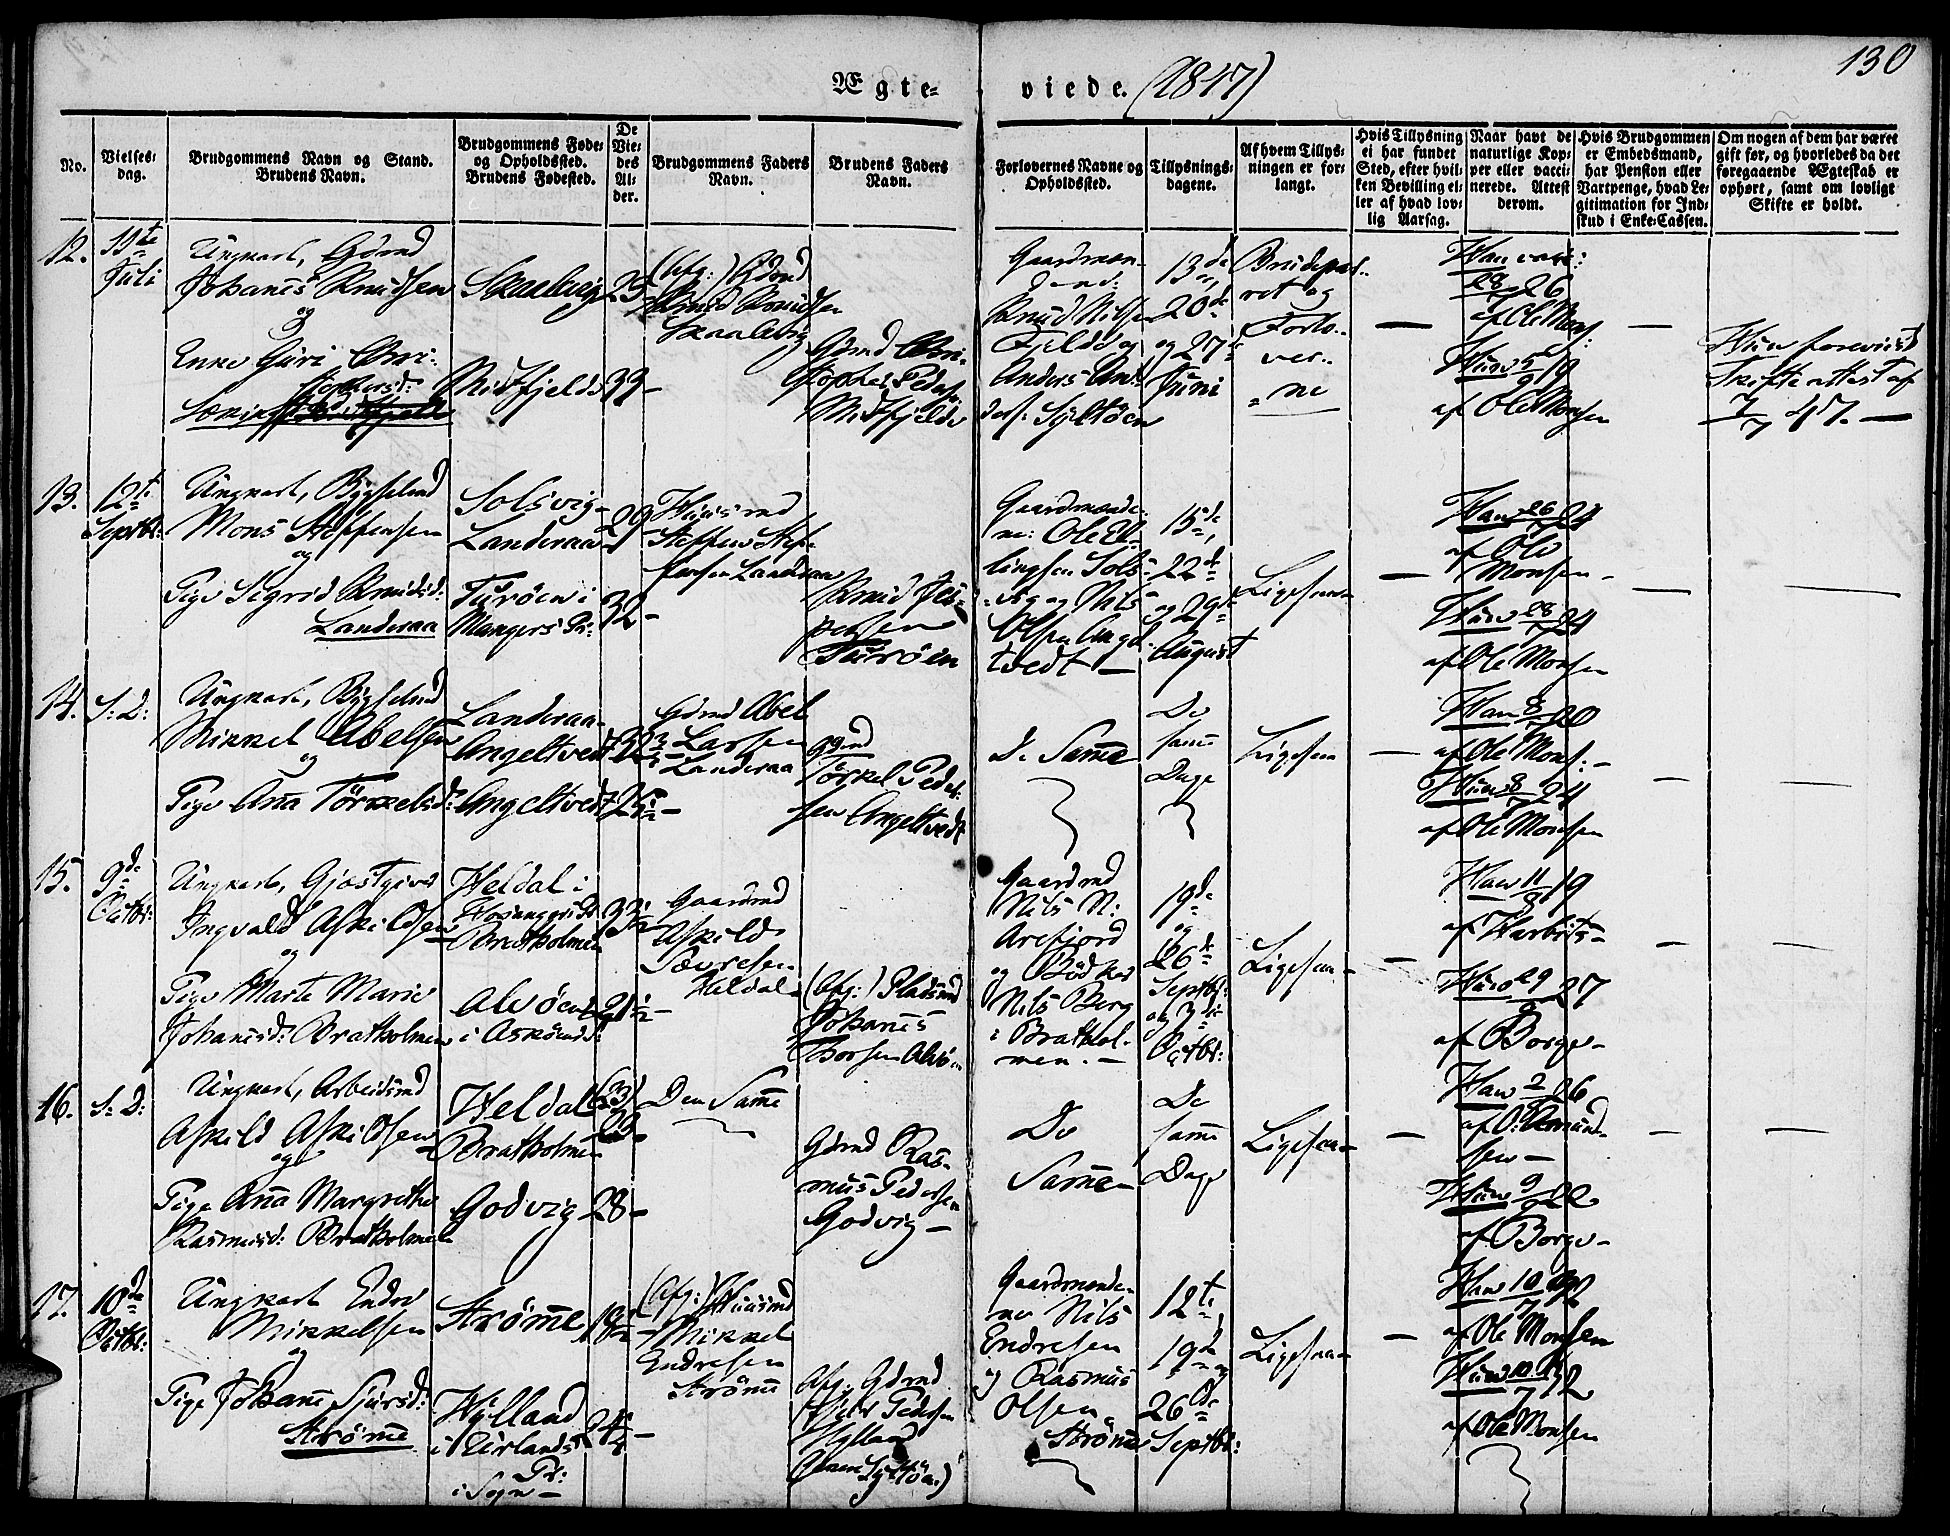 130
Ægte- viede. (1847)
No.
Vielses-
dag.
Brudgommens Navn og Stand.
Brudens Navn.
Brudgommens Føde-
og Opholdssted.
Brudens Fødested.
De
Vie-
des
Al-
der.
Brudgommens Faders
Navn.
Brudens Faders
Navn.
Forlovernes Navne og
Opholdssted.
Tillysnings-
dagene.
Af hvem Tillys-
ningen er for-
langt.
Hvis Tillysning
ei har fundet
Sted, efter hvil-
ken Bevilling el-
ler af hvad lov-
lig Aarsag.
Naar havt de
naturlige Kop-
per eller vacci-
nerede. Attest
derom.
Hvis Brudgommen
er Embedsmand,
har Pension eller
Vartpenge, hvad Le-
gitimation for Ind-
skud i Enke-Cassen.
Om nogen af dem har været
gift før, og hvorledes da det
foregaaende Ægteskab er
ophørt, samt om lovligt
Skifte er holdt.
12.
Juli
Ungkarl, Gdmd
Johanes Knudsen
og
Enke Guri Chri-
Skaalevig
Midtfjeld
39-
(Afg:) Gdmd
Knud Knudsen
Skaalevig
Gdmd Chri-
stopher Peders:
Midtfjeld
Gaardmæn-
dene:
Knud Nilsen
Fjeld og
Anders An-
ders:
13de,
20de
og 27de
Juni
Brudepar-
ret og
Forlo-
ver-
ne
Han vacc:
af Ole Mons:
Hun
af Ole Monsen
Hun foreviist
Skifteattest af
7/7 47. —
13.
12te
Septbr:
Ungkarl, Bygselmd
Mons Steffensen
og
Pige Sigrid Knudsd:
Landeraa
Solsvig-
Landeraa
Turöen i
Mangers Pr:
29
32-
Huusmd
Steffen Stef-
fensen Landeraa
Knud Jes-
persen
Turöen
Gaardmænde-
ne: Ole El-
lingsen Sols-
vig og Nils
Olsen Angel-
tvedt —
15de,
22de
og 29de
August
Ligesaa-
Han 26/ 24
af Ole
Monsen-
Hun 28/ 24
af Ole Monsen
14.
S: D:
Ungkarl, Bygselmd
Mikkel Abelsen
og
Pige Ana Törkelsd:
Landeraa-
Angeltvedt
Angeltvedt
Gdmd Abel
Larsen
Landeraa
Gdmd
Törkel Peder-
sen Angeltvedt
De Samme
De
samme
Dage
Ligesaa
Han 8/ 20
af Ole Mons:-
Hun 8/ 24
af Ole Monsen
15.
9de
Octbr:
Ungkarl, Gjæstgiver
Ingvald Askildsen
og
Pige Marte Marie
Johanesd: Bratholmen
Heldal i
Bratholmen
Alvöen
i Asköens
Gaardmd
Askild
Sævresen
Heldal
(Afg:) Pladsmd
Johanes
Thorsen Alvöen
Gaardmd
Nils N:
Arefjord
og Bödker
Nils Berg
i Brathol-
men. —
19de
og
26de
Septbr:
og 3de
Octbr:
Ligesaa-
Han 11/ 19
Hun 29/ 27
af Borge-
16.
S: D:
Ungkarl, Arbeidsmd
Askild Askildsen
og
Pige Ana Margrethe
Rasmusd: Bratholmen
Heldal
Bratholmen
Godvig
28-
Den Samme
Gdmd Ras-
mus Pedersen
Godvig —
De
Samme
De
samme
Dage
Ligesaa-
Han 2/ 26
Hun 9/ 22
af Borge-
17.
10de
Octbr:
Ungkarl Endre
Mikkelsen
og
Pige Johane Sjursd:
Strömme
Strömme
Hylland
i Urlands
Pr:
i Sogn —
(Afg:) Huusmd
Mikkel
Endresen
Strömme
Afg. Gdmd
Sjur Pedersen
Hylland
Gaardmænde-
ne Nils
Endresen
og Rasmus
Olsen
Strömme
12te,
19de og
26de
Septbr:
Ligesaa-
Han
af Ole Monsen
Hun
af Ole Monsen